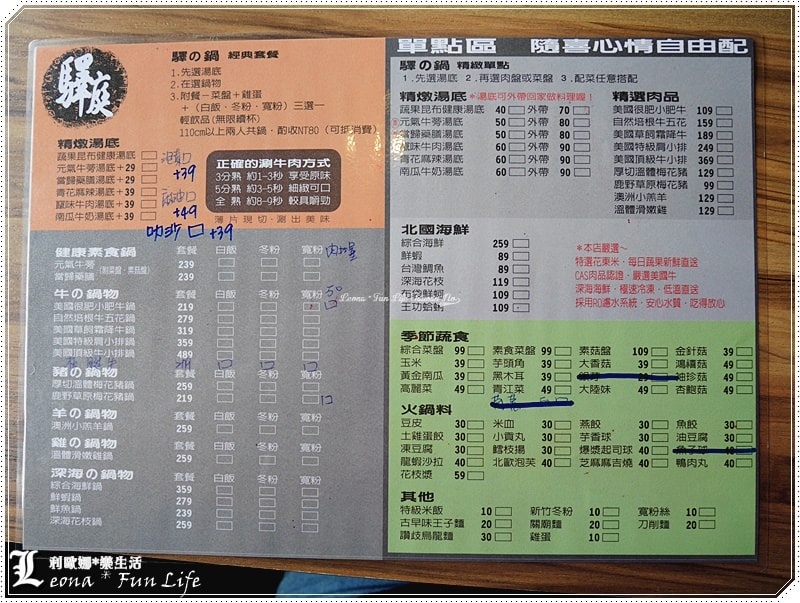 驛庭
驛の鍋 經典套餐
1.先選湯底
2.在選鍋物
3.附餐-菜盤+雞蛋
+(白飯、冬粉、寬粉)三選一
輕飲品(無限續杯)
110cm以上兩人共鍋,酌收NT80(可抵消費)
精燉湯底
蔬果昆布健康湯底
元氣牛蒡湯底+29
當歸藥膳湯底+29
青花麻辣湯底+39
臟味牛肉湯底+39
南瓜牛奶湯底+39
+39
+49
叻沙 +39
正確的涮牛肉方式
3分熟 約1-3秒 享受原味
5分熟 約3-5秒 細緻可口
全 熟 約8-9秒 較具嚼勁
薄片現切,涮出美味
健康素食鍋 套餐 白飯 冬粉 寬粉
元氣牛蒡 (附菜盤、素菇盤) 239
當歸藥膳 239
牛の鍋物 套餐 白飯 冬粉 寬粉
美國很肥小肥牛鍋 219
自然培根牛五花鍋 279
美國草飼霜降牛鍋 319
美國特級肩小排鍋 359
美國頂級牛小排鍋 489
豬の鍋物 套餐 白飯 冬粉 寬粉
厚切溫體梅花豬鍋 259
鹿野草原梅花豬鍋 219
羊の鍋物 套餐 白飯 冬粉 寬粉
澳洲小羔羊鍋 259
雞の鍋物 套餐 白飯 冬粉 寬粉
溫體滑嫩雞鍋 259
深海の鍋物 套餐 白飯 冬粉 寬粉
綜合海鮮鍋 359
鮮蝦鍋 219
鮮魚鍋 239
深海花枝鍋 259
單點區 隨喜心情自由配
驛の鍋 精緻單點
1.先選湯底 2.再選肉盤或菜盤 3.配菜任意搭配
精燉湯底 *湯底可外帶回家做料理喔!
蔬果昆布健康湯底 40 外帶 60
元氣牛蒡湯底 50 外帶 80
當歸藥膳湯底 50 外帶 70
臟味牛肉湯底 60 外帶 90
青花麻辣湯底 60 外帶 90
南瓜牛奶湯底 60 外帶 90
精選肉品
美國很肥小肥牛 109
自然培根牛五花 159
美國草飼霜降牛 189
美國特級肩小排 249
美國頂級牛小排 369
厚切溫體梅花豬 129
鹿野草原梅花豬 99
澳洲小羔羊 129
溫體滑嫩雞 129
北國海鮮
綜合海鮮 259
鮮蝦 89
台灣鯛魚 89
深海花枝 119
布袋鮮蚵 109
王功蛤蜊 109
*本店嚴選~
特選花東米、每日蔬果新鮮直送
CAS肉品認證、嚴選美國牛
深海海鮮、極速冷凍、低溫直送
採用RO濾水系統,安心水質、吃得放心
季節蔬食
綜合菜盤 99 素食菜盤 99 素菇盤 109 金針菇 39
玉米 39 芋頭角 39 大香菇 39 鴻禧菇 49
黃金南瓜 39 黑木耳 39 29 袖珍菇 39
高麗菜 49 青江菜 49 大陸妹 49 杏鮑菇 49
火鍋料
豆皮 30 米血 30 燕餃 30 魚餃 30
土雞蛋餃 30 小貢丸 30 芋香球 30 油豆腐 30
凍豆腐 30 鱈枝揚 30 爆漿起司球 40 魚子球 40
龍蝦沙拉 40 北歐泡芙 40 芝麻麻吉燒 40 鴨肉丸 40
花枝漿 59
其他
特級米飯 10 新竹冬粉 10 寬粉絲 10
古早味王子麵 20 關廟麵 20 刀削麵 20
讚歧烏龍麵 20 雞蛋 10
Leona*Fun Life
利歐娜*樂生活
Leona * Fun Life